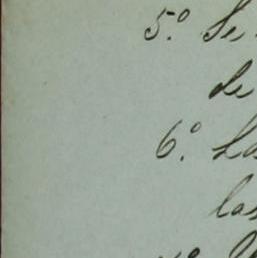 5.º Se
de
6.º La
las